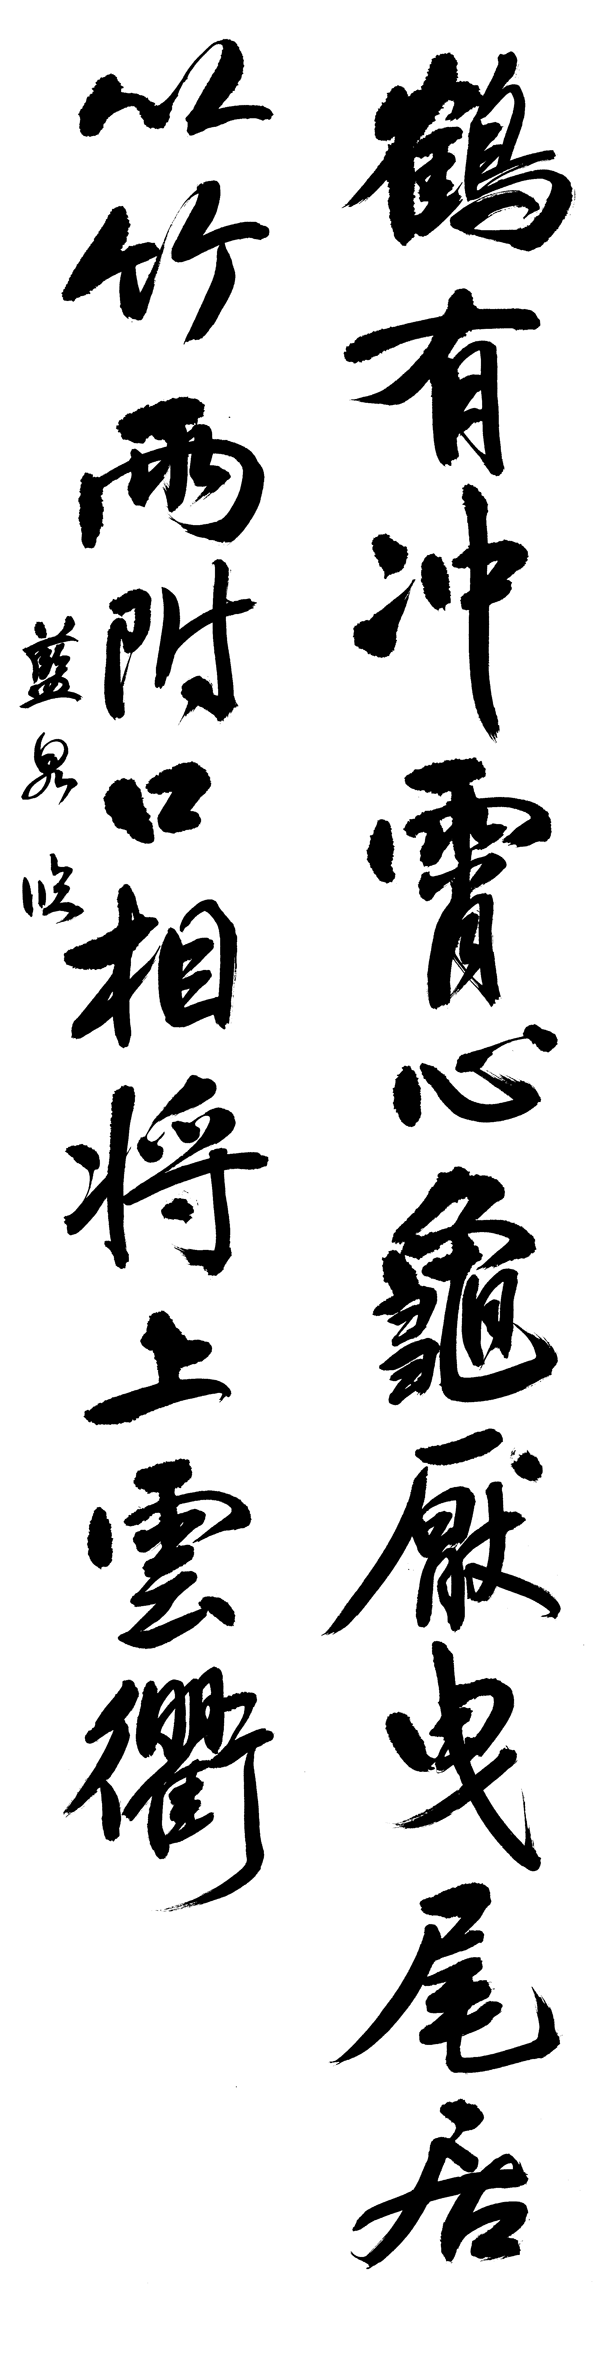 鶴有冲霄心龜厭曳尾居
以竹兩附口相將上雲衢
藍泉臨